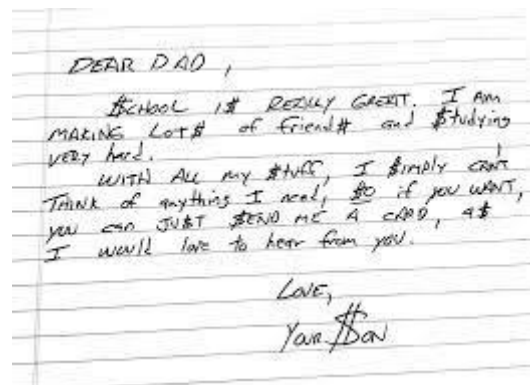 DEAR DAD,
$CHOOL I$ REALLY GREAT. I AM
MAKING LOT$ of friend$ and $tudying
very hard.
WITH ALL my $tuff, I $imply can't
THINK of anything I need, $O if you WANT,
you can JU$T $END ME A CARD, A$
I would love to hear from you.
LOVE,
Your $ON